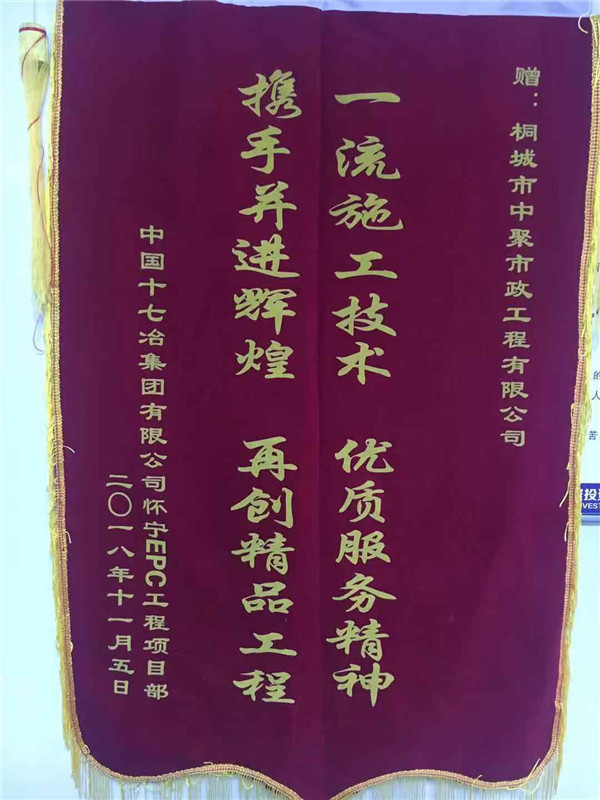 赠：桐城市中聚市政工程有限公司
一流施工技术 优质服务精神
携手并进辉煌 再创精品工程
中国十七冶集团有限公司怀宁EPC工程项目部
二〇一八年十一月五日
的
人
苦
投
VEST